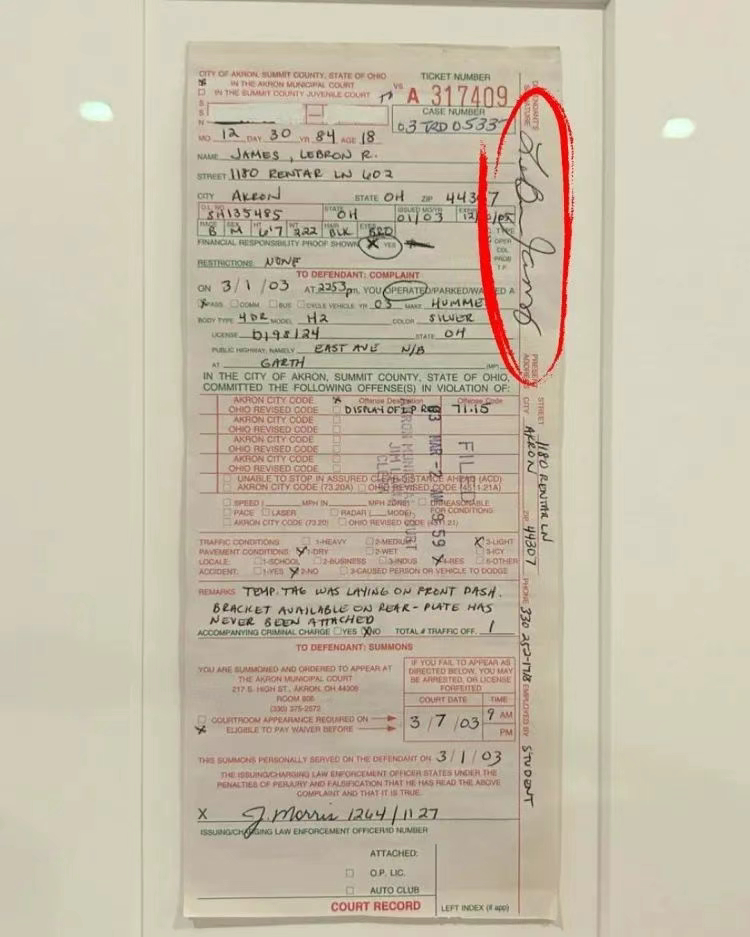 CITY OF AKRON, SUMMIT COUNTY, STATE OF OHIO
TICKET NUMBER
X IN THE AKRON MUNICIPAL COURT
IN THE SUMMIT COUNTY JUVENILE COURT
VS.
A 317409
CASE NUMBER
03 TRD 0533
S
S
N
MO 12 DAY 30 YR 84 AGE 18
NAME JAMES, LEBRON R.
STREET 1180 RENTAR LN 602
CITY AKRON STATE OH ZIP 44307
D.L. NO. SH135485 STATE OH ISSUED MO/YR 01/03
RACE B SEX M HT 6'7 WT 222 HAIR BLK EYES BRO
TYPE
OPER
COL
PROB
T.P.
FINANCIAL RESPONSIBILITY PROOF SHOWN X YES
RESTRICTIONS: NONE
TO DEFENDANT: COMPLAINT
ON 3/1/03 AT 2253 pm, YOU OPERATED/PARKED/WALKED A
X PASS COMM. BUS CYCLE VEHICLE YR 03 MAKE HUMME
BODY TYPE 4DR MODEL H2 COLOR SILVER
LICENSE D198124 STATE OH
PUBLIC HIGHWAY, NAMELY EAST AVE N/B
AT GARTH (MP)
IN THE CITY OF AKRON, SUMMIT COUNTY, STATE OF OHIO,
COMMITTED THE FOLLOWING OFFENSE(S) IN VIOLATION OF:
AKRON CITY CODE X Offense Designation Offense Code
OHIO REVISED CODE DISPLAY OF LP REG 71.15
AKRON CITY CODE
OHIO REVISED CODE
AKRON CITY CODE
OHIO REVISED CODE
AKRON CITY CODE
OHIO REVISED CODE
UNABLE TO STOP IN ASSURED CLEAR DISTANCE AHEAD (ACD)
AKRON CITY CODE (73.20A) OHIO REVISED CODE (4511.21A)
SPEED ( MPH IN MPH ZONE) UNREASONABLE
PACE LASER RADAR ( MODE) FOR CONDITIONS
AKRON CITY CODE (73.20) OHIO REVISED CODE (4511.21)
FILED
03 MAR -2 9 59
AKRON MUNICIPAL COURT
CLERK
TRAFFIC CONDITIONS: 1-HEAVY 2-MEDIUM X 3-LIGHT
PAVEMENT CONDITIONS: X 1-DRY 2-WET 3-ICY
LOCALE: 1-SCHOOL 2-BUSINESS 3-INDUS X 4-RES 5-OTHER
ACCIDENT: 1-YES X 2-NO 3-CAUSED PERSON OR VEHICLE TO DODGE
REMARKS TEMP. TAG WAS LAYING ON FRONT DASH.
BRACKET AVAILABLE ON REAR-PLATE HAS
NEVER BEEN ATTACHED
ACCOMPANYING CRIMINAL CHARGE YES X NO TOTAL # TRAFFIC OFF. 1
TO DEFENDANT: SUMMONS
YOU ARE SUMMONED AND ORDERED TO APPEAR AT
THE AKRON MUNICIPAL COURT
217 S. HIGH ST., AKRON, OH 44308
ROOM 806
(330) 375-2572
COURTROOM APPEARANCE REQUIRED ON
X ELIGIBLE TO PAY WAIVER BEFORE
IF YOU FAIL TO APPEAR AS
DIRECTED BELOW, YOU MAY
BE ARRESTED, OR LICENSE
FORFEITED
COURT DATE TIME
3/7/03 9 AM
PM
THIS SUMMONS PERSONALLY SERVED ON THE DEFENDANT ON 3/1/03
THE ISSUING/CHARGING LAW ENFORCEMENT OFFICER STATES UNDER THE
PENALTIES OF PERJURY AND FALSIFICATION THAT HE HAS READ THE ABOVE
COMPLAINT AND THAT IT IS TRUE.
X J. Morris 1264/1127
ISSUING/CHARGING LAW ENFORCEMENT OFFICER/ID NUMBER
ATTACHED:
O.P. LIC.
AUTO CLUB
COURT RECORD
LEFT INDEX (if app)
DEFENDANT'S SIGNATURE LeBron James
PRESENT ADDRESS STREET 1180 RENTAR LN
CITY AKRON ZIP 44307 PHONE 330 252-1718 EMPLOYED BY STUDENT